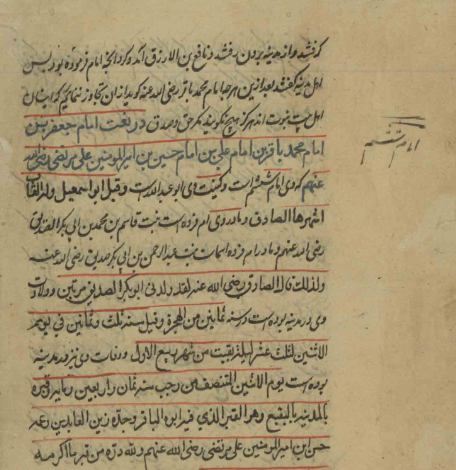 کرفتند و از مدینه بیرون رفتند و نافع بن الازرق آمد و کرد آنچه امام فرموده بود پس
اهل مدینه گفتند بعد ازین هرچه امام محمد باقر رضی الله عنه گوید از ان تجاوز ننمائیم که ایشان
اهل بیت نبوت اند هرگز هیچ نگویند مگر حق و صدق در نعت امام جعفر بن
امام محمد باقر بن امام علی بن امام حسین بن امیر المومنین علی مرتضی رضی الله
عنهم که وی امام ششم است و کنیت وی ابو عبدالله است و قیل ابو اسمعیل وله القاب
اشهرها الصادق و مادر وی ام فروه است بنت قاسم بن محمد بن ابی بکر الصدیق
رضی الله عنهم و مادر ام فروه اسما است بنت عبدالرحمن بن ابی بکر صدیق رضی الله عنه
ولذلک قال الصادق رضی الله عنه لقد ولدنی ابو بکر الصدیق مرتین و ولادت
وی در مدینه بوده است در سنه ثمانین من الهجرة و قیل سنه ثلث و ثمانین فی یوم
الاثنین لثلث عشر لیلة بقیت من شهر ربیع الاول و وفات وی نیز در مدینه
بوده است یوم الاثنین المنتصف من رجب سنه ثمان و اربعین و مایه و قبره
بالمدینه بالبقیع و هو القبر الذی فیه ابوه الباقر و جده زین العابدین و عمه
حسن ابن امیر المومنین علی مرتضی رضی الله عنهم و لله دره من قبر ما اکرمه
امام ششم